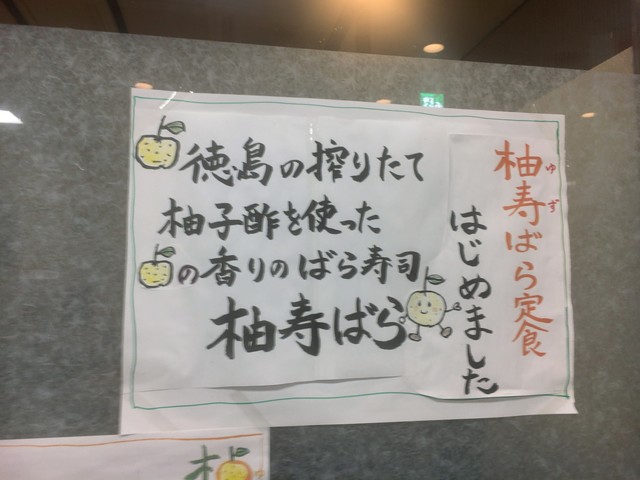 柚寿ばら定食
ゆず
はじめました
徳島の搾りたて
柚子酢を使った
の香りのばら寿司
柚寿ばら